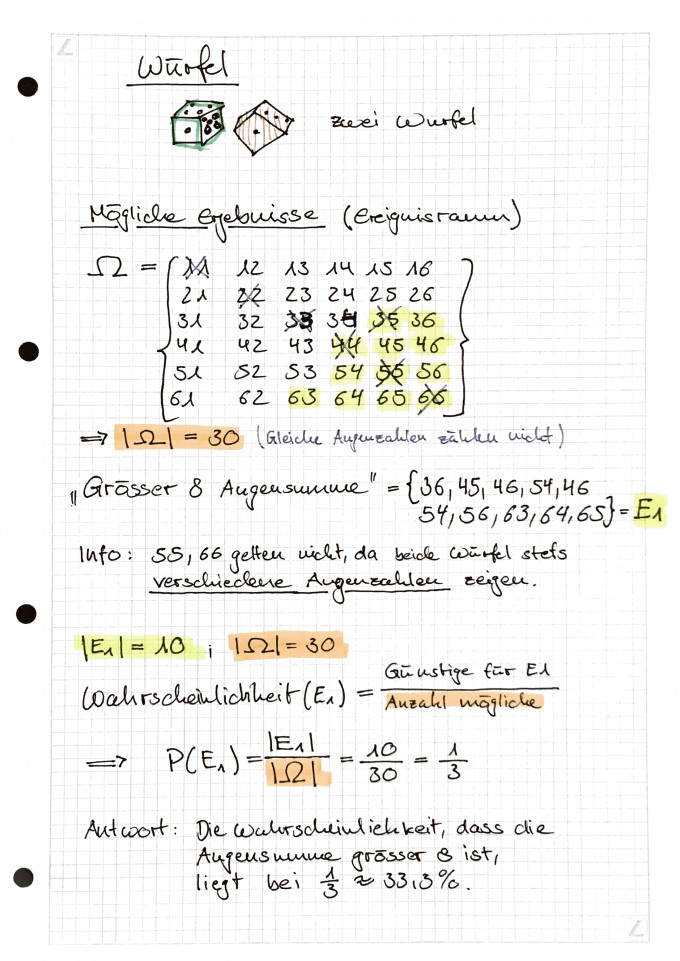 Würfel
zwei Würfel
Mögliche Ergebnisse (Ereignisraum)
Ω = { 11 12 13 14 15 16
21 22 23 24 25 26
31 32 33 34 35 36
41 42 43 44 45 46
51 52 53 54 55 56
61 62 63 64 65 66 }
⟹ |Ω| = 30 (Gleiche Augenzahlen zählen nicht)
„Grösser 8 Augensumme" = {36, 45, 46, 54, 46
54, 56, 63, 64, 65} = E1
Info: 55, 66 gelten nicht, da beide Würfel stets
verschiedene Augenzahlen zeigen.
|E1| = 10 ; |Ω| = 30
Wahrscheinlichkeit (E1) = Günstige für E1 / Anzahl mögliche
⟹ P(E1) = |E1| / |Ω| = 10/30 = 1/3
Antwort: Die Wahrscheinlichkeit, dass die
Augensumme grösser 8 ist,
liegt bei 1/3 ≈ 33,3%.